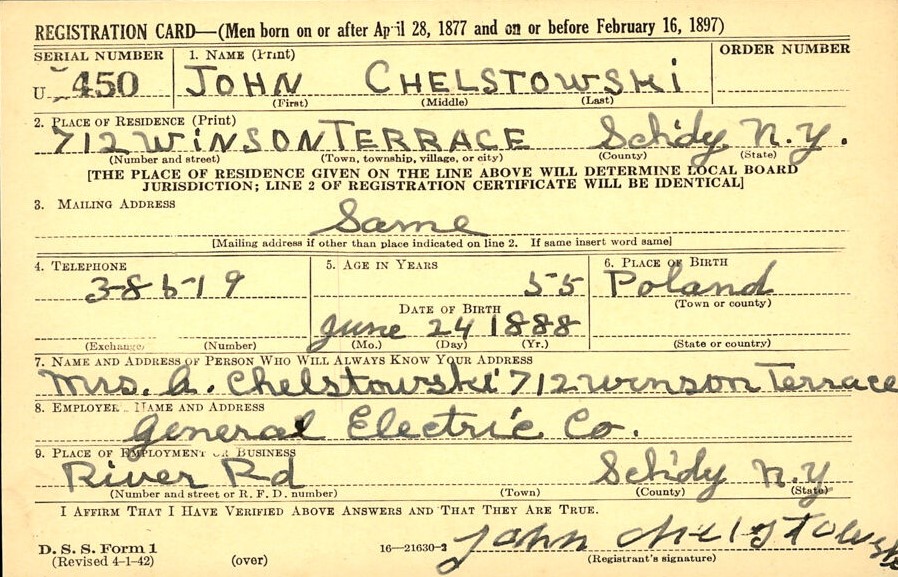 REGISTRATION CARD—(Men born on or after April 28, 1877 and on or before February 16, 1897)
SERIAL NUMBER 1. NAME (Print) ORDER NUMBER
U 450 JOHN CHELSTOWSKI
(First) (Middle) (Last)
2. PLACE OF RESIDENCE (Print)
712 WINSON TERRACE Sch'dy N.Y.
(Number and street) (Town, township, village, or city) (County) (State)
[THE PLACE OF RESIDENCE GIVEN ON THE LINE ABOVE WILL DETERMINE LOCAL BOARD
JURISDICTION; LINE 2 OF REGISTRATION CERTIFICATE WILL BE IDENTICAL]
3. MAILING ADDRESS
Same
[Mailing address if other than place indicated on line 2. If same insert word same]
4. TELEPHONE 5. AGE IN YEARS 6. PLACE OF BIRTH
3-8619 55 Poland
DATE OF BIRTH (Town or county)
June 24 1888
(Exchange) (Number) (Mo.) (Day) (Yr.) (State or country)
7. NAME AND ADDRESS OF PERSON WHO WILL ALWAYS KNOW YOUR ADDRESS
Mrs. A. Chelstowski 712 Winson Terrace
8. EMPLOYER'S NAME AND ADDRESS
General Electric Co.
9. PLACE OF EMPLOYMENT OR BUSINESS
River Rd Sch'dy N.Y
(Number and street or R. F. D. number) (Town) (County) (State)
I AFFIRM THAT I HAVE VERIFIED ABOVE ANSWERS AND THAT THEY ARE TRUE.
D. S. S. Form 1 16—21630-2 John Chelstowski
(Revised 4-1-42) (over) (Registrant's signature)